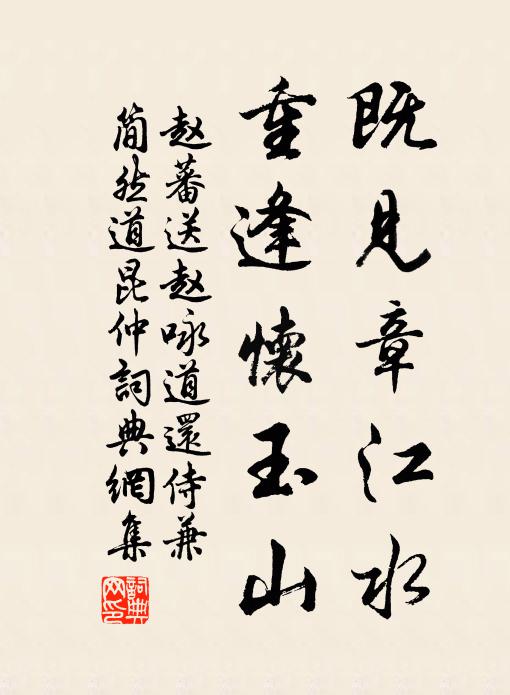 既見章江水
重逢懷玉山
赵蕃送赵咏道還侍兼
简然道昆仲詞典網集
詞典